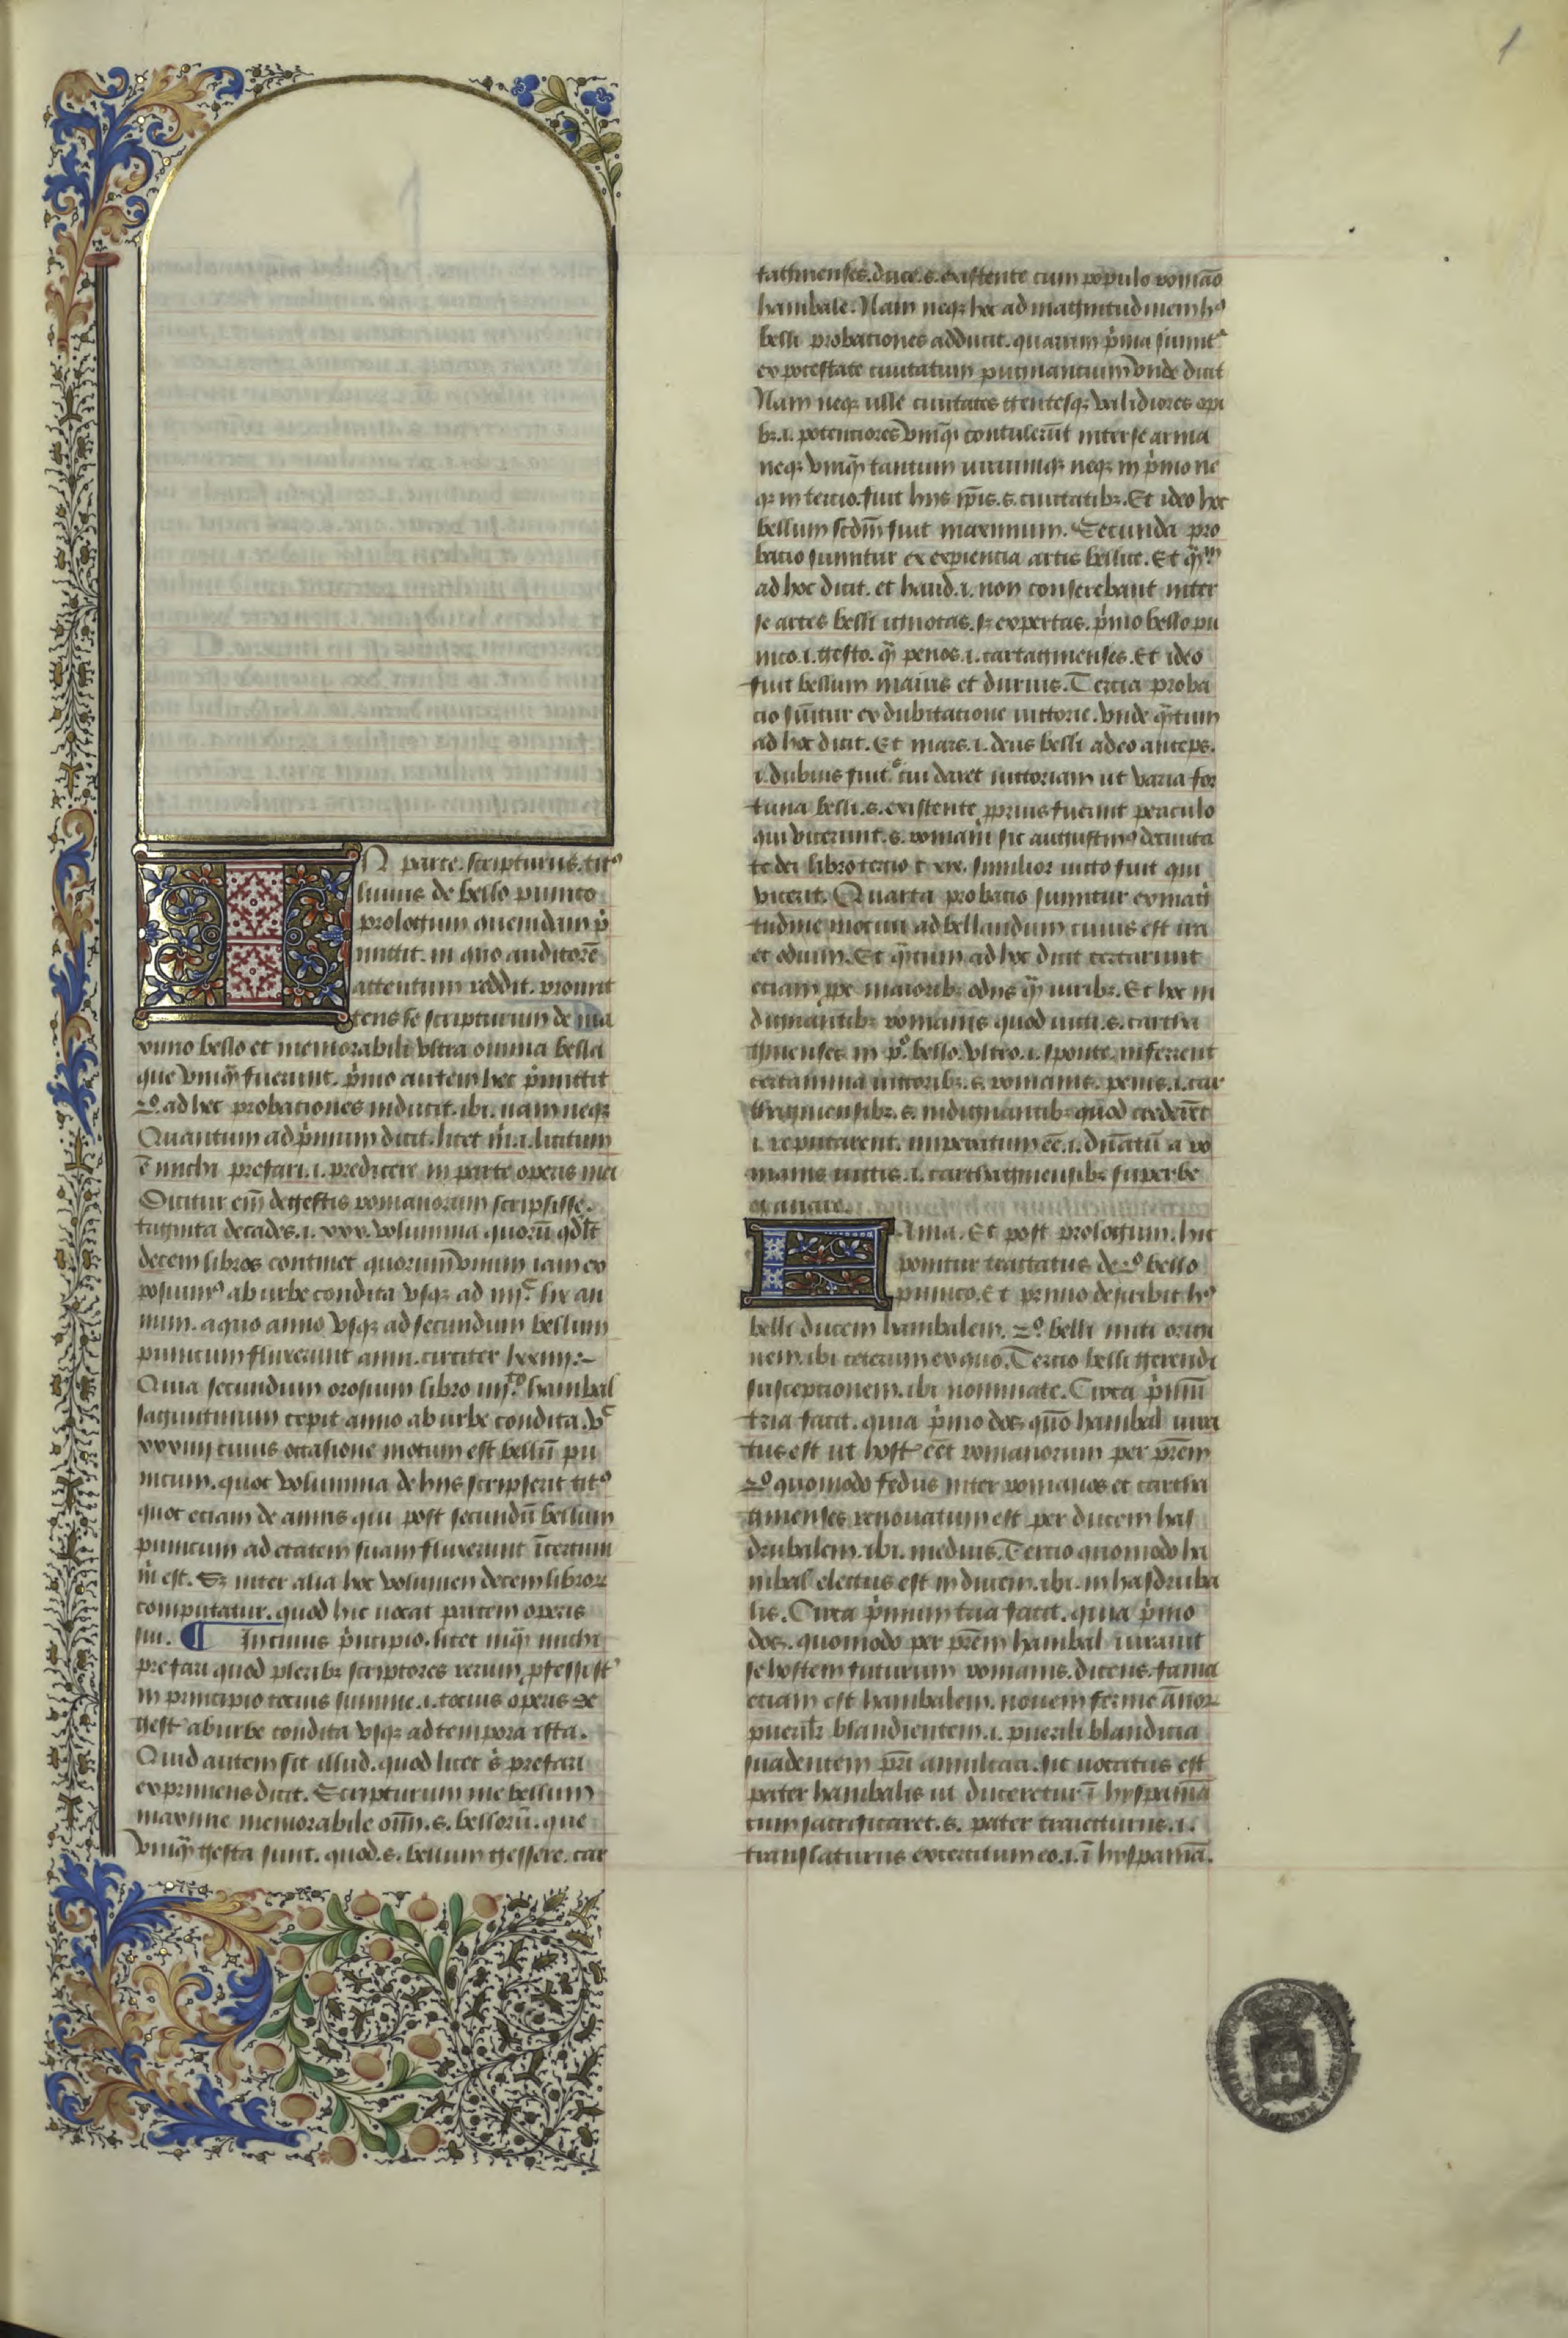 1
IN parte. scripturus. titꝰ
liuius de bello punico
prologum quendam p̃
mittit. in quo auditorē
attentum reddit. promit
tens se scripturum de ma
ximo bello et memorabili vltra omnia bella
que vmq̃ fuerunt. p̃mo autem hec p̃mittit
2º. ad hec probationes inducit. ibi. nam neqꝫ
Quantum ad p̃mum dicit. licet m̃. i. licitum
ē michi prefari. i. predicere in parte operis mei
Dicitur em̃ de gestis romanorum scripsisse.
decades. i. volumina quorū qdl̃t
decem libros continet quorum vnum iam ex
posuimꝰ ab urbe condita vsqꝫ ad an
num. a quo anno vsqꝫ ad secundum bellum
punicum fluxerunt anni. circiter lxiiij:~
Quia secundum orosium libro iiijto. hanibal
saguntinum cepit anno ab urbe condita. vc
xxxiiij cuius occasione motum est bellū pu
nicum. quot volumina de hijs scripserit titꝰ
quot etiam de annis qui post secundū bellum
punicum ad etatem suam fluxerunt īcertum
m̃ est. Sꝫ inter alia hoc volumen decem libroꝝ
computatur. quod hic uocat partem operis
sui. ¶ In cuius p̃ncipio. licet inq̃ michi
prefari quod pleribꝫ scriptores rerum ꝓfessi st̃
in principio totius summe. i. totius operis de
gest̃ ab urbe condita vsqꝫ ad tempora ista.
Quid autem sit illud. quod licet s̃ prefari
exprimens dicit. Scripturum me bellum
maxime memorabile oĩm. s. bellorū. que
vmq̃ gesta sunt. quod. s. bellum gessere. car
taginenses. duce. s. existente cum populo romāo
hanibale. Nam neqꝫ hec ad magnitudinem hꝰ
belli probationes adducit. quarum p̃ma sumitᷣ
ex potestate ciuitatum pugnantium vnde dicit
Nam neqꝫ ulle ciuitates gentesqꝫ validiores opi
bꝫ. i. potentiores vmq̃ contulerūt inter se arma
neqꝫ vmq̃ tantum uiriumqꝫ neqꝫ in p̃mo ne
qꝫ in tertio. fuit hijs ip̃is. s. ciuitatibꝫ. Et ideo hoc
bellum scdm̃ fuit maximum. Secunda pro
batio sumitur ex expientia artis bellice. Et q̃tum
ad hoc dicit. et haud. i. non conserebant inter
se artes belli ignotas. sꝫ expertas. p̃mo bello pu
nico. i. gesto. q̃ penos. i. cartaginenses. Et ideo
fuit bellum maius et durius. Tertia proba
cio sūitur ex dubitatione uictorie. vnde q̃tum
ad hoc dicit. Et mars. i. deus belli adeo anceps.
i. dubius fuit. cui daret uictoriam ut varia for
tuna belli. s. existente ꝓprius fuerint periculo
qui vicerunt. s. romani sic augustinꝰ de ciuita
te dei libro tertio c xix. similior uicto fuit qui
vicerit. Quarta probatio sumitur ex magni
tudine motiui ad bellandum cuius est ira
et odium. Et q̃tum ad hoc dicit certarunt
etiam ꝓpe maioribꝫ odijs q̃ uiribꝫ. Et hoc in
dignātibꝫ romanis quod uicti. s. cartha
ginenses in pº. bello. vltro. i. sponte. inferrent
certamina uictoribꝫ. s. romanis. penis. i. car
thaginensibꝫ. s. indignantibꝫ quod crederēt
i. reputarent. imperatum eē. i. dn̄atū a ro
manis uictis. i. carthaginensibꝫ superbe
et auare.
FAma. Et post prologum. hic
ponitur tractatus de 2º. bello
punico. Et primo describit hꝰ
belli ducem hanibalem. 2º. belli initi origi
nem. ibi ceterum ex quo. Tercio belli gerendi
susceptionem. ibi nominate. Circa p̃mū
tria facit. quia p̃mo doꝫ quō hanibal iura
tus est ut host̃ eēt romanorum per pr̃em
2º quomodo fedus inter romanos et cartha
ginenses renouatum est per ducem has
drubalem. ibi. medius. Tercio quomodo ha
nibal electus est in ducem. ibi. in hasdruba
lis. Circa p̃mum tria facit. quia p̃mo
doꝫ. quomodo per pr̃em hanibal iurauit
se hostem futurum romanis. dicens. fama
etiam est hanibalem. nouem ferme ānoꝝ
pueril̃r blandientem. i. puerili blandicia
suadentem pr̃i amilcari. sic uocatus est
pater hanibalis ut duceretur ī hyspaniā
cum sacrificaret. s. pater traiecturus. i.
translaturus exercitum eo. i. ī hyspaniā.